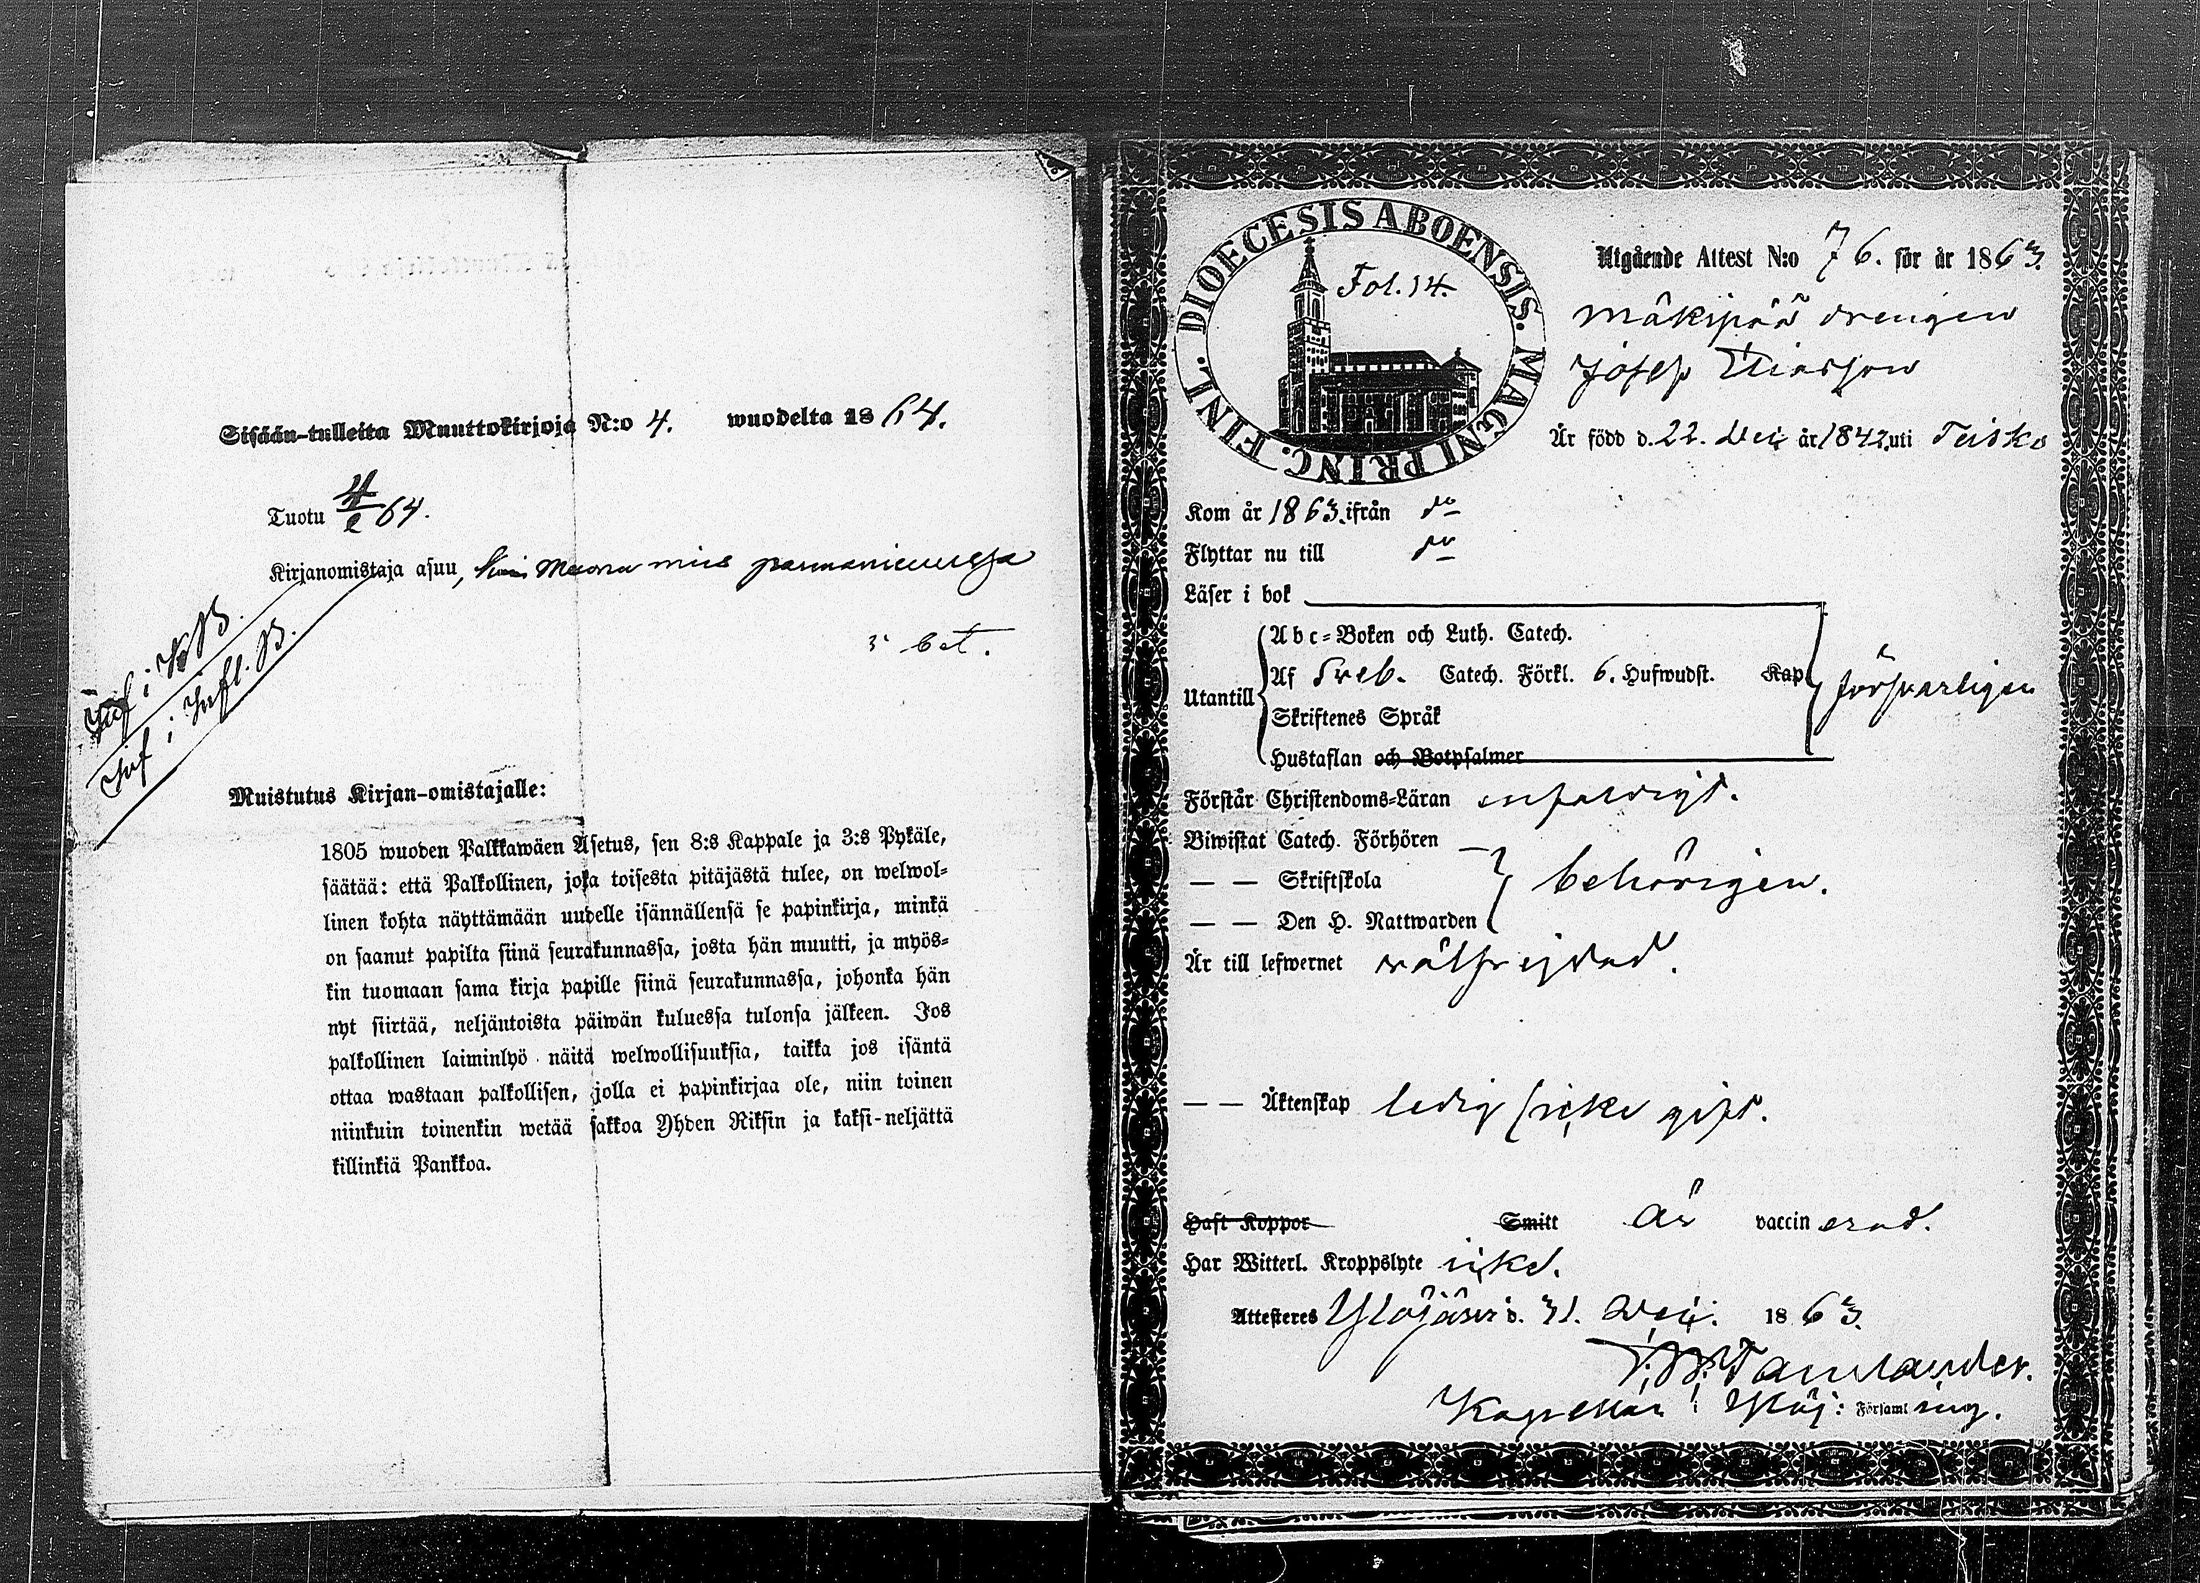 Sisään-tulleita Muuttokirjoja N:o 4. wuodelta 1864.
Tuotu 4/2 64.
Kirjanomistaja asuu,
5 bet.
Inf i KB.
Inf i Infl. B.
Muistutus Kirjan-omistajalle:
1805 wuoden Palkkawäen Asetus, sen 8:s Kappale ja 3:s Pykäle,
säätää: että Palkollinen, joka toisesta pitäjästä tulee, on welwol-
linen kohta näyttämään uudelle isännällensä se papinkirja, minkä
on saanut papilta siinä seurakunnassa, josta hän muutti, ja myös-
kin tuomaan sama kirja papille siinä seurakunnassa, johonka hän
nyt siirtää, neljäntoista päiwän kuluessa tulonsa jälkeen. Jos
palkollinen laiminlyö näitä welwollisuuksia, taikka jos isäntä
ottaa wastaan palkollisen, jolla ei papinkirjaa ole, niin toinen
niinkuin toinenkin wetää sakkoa Yhden Riksin ja kaksi-neljättä
killinkiä Pankkoa.
FINL. DIOECESIS ABOENSIS. MAGNI PRINC.
Fol. 14.
Utgående Attest N:o 76. för år 1863.
Mäkipää drengen
Josep Eliasson
Är född d. 22. Dec: år 1842. uti Teisko
Kom år 1863. ifrån do
Flyttar nu till do
Läser i bok
Utantill
Abc-Boken och Luth. Catech.
Af Sveb. Catech. Förkl. 6. Hufwudst. Kap
Skriftenes Språk
Hustaflan och Botpsalmer
försvarligen
Förstår Christendoms-Läran enfaldigt.
Biwistat Catech. Förhören
— — Skriftskola
— — Den H. Nattwarden
behörigen.
Är till lefwernet wälfrejdad.
— — Äktenskap ledig icke gift.
Haft Koppor Smitt är vaccinerad.
Har Witterl. Kroppslyte icke.
Attesteres Ylöjärvi d. 31. Dec: 1863.
Tamlander.
Kapellan i Ylöj: Församling.